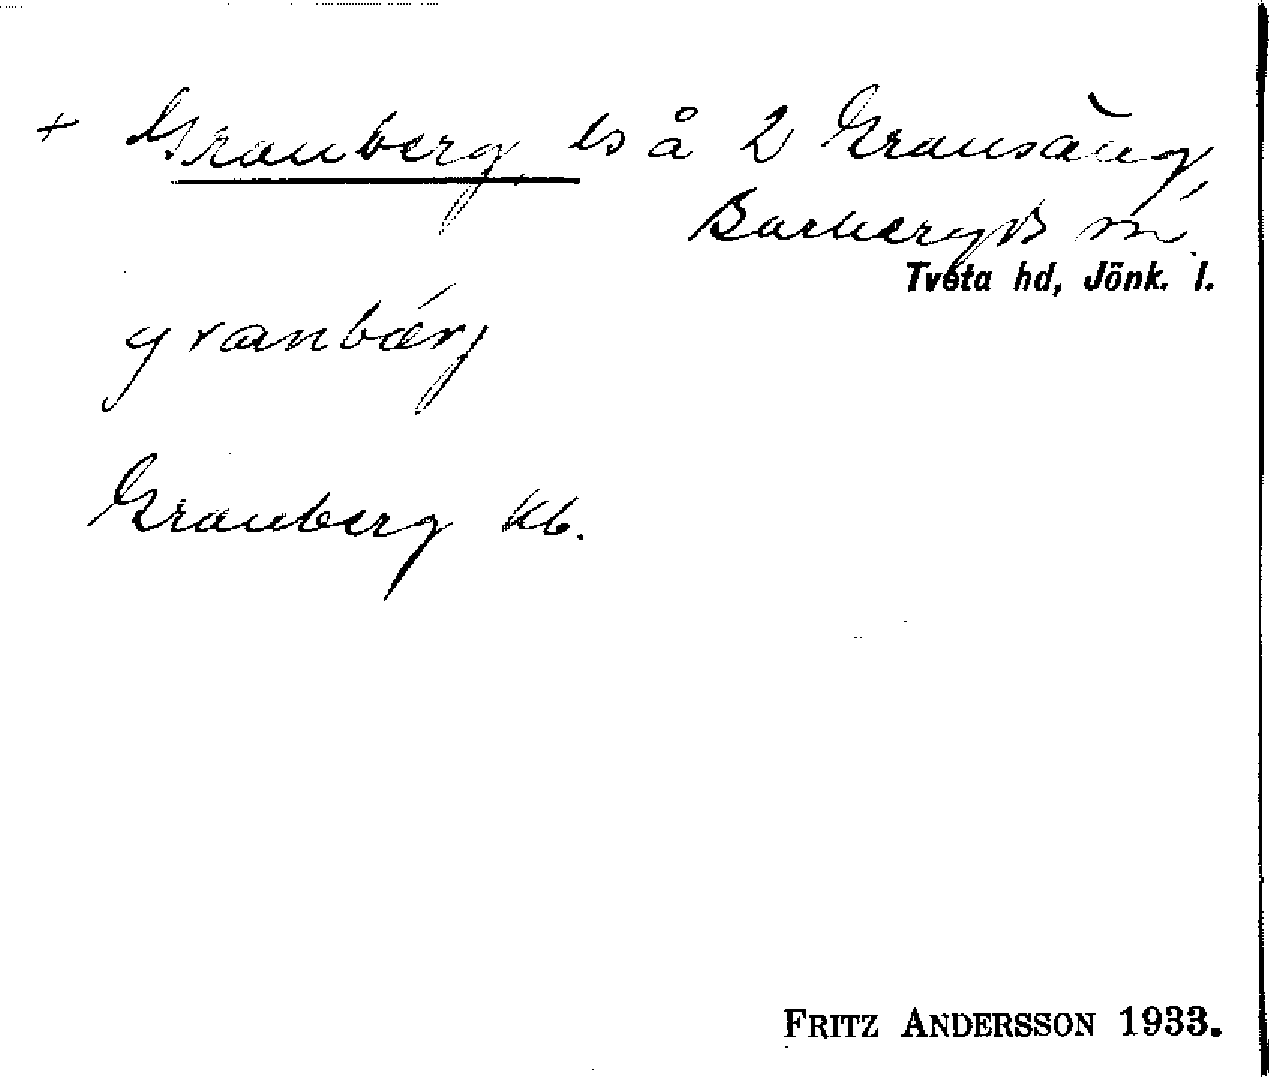 + Granberg ls å 2 Gransäng,
Barkeryds sn
Tveta hd, Jönk. l.
granbærj
Granberg kb.
FRITZ ANDERSSON 1933.